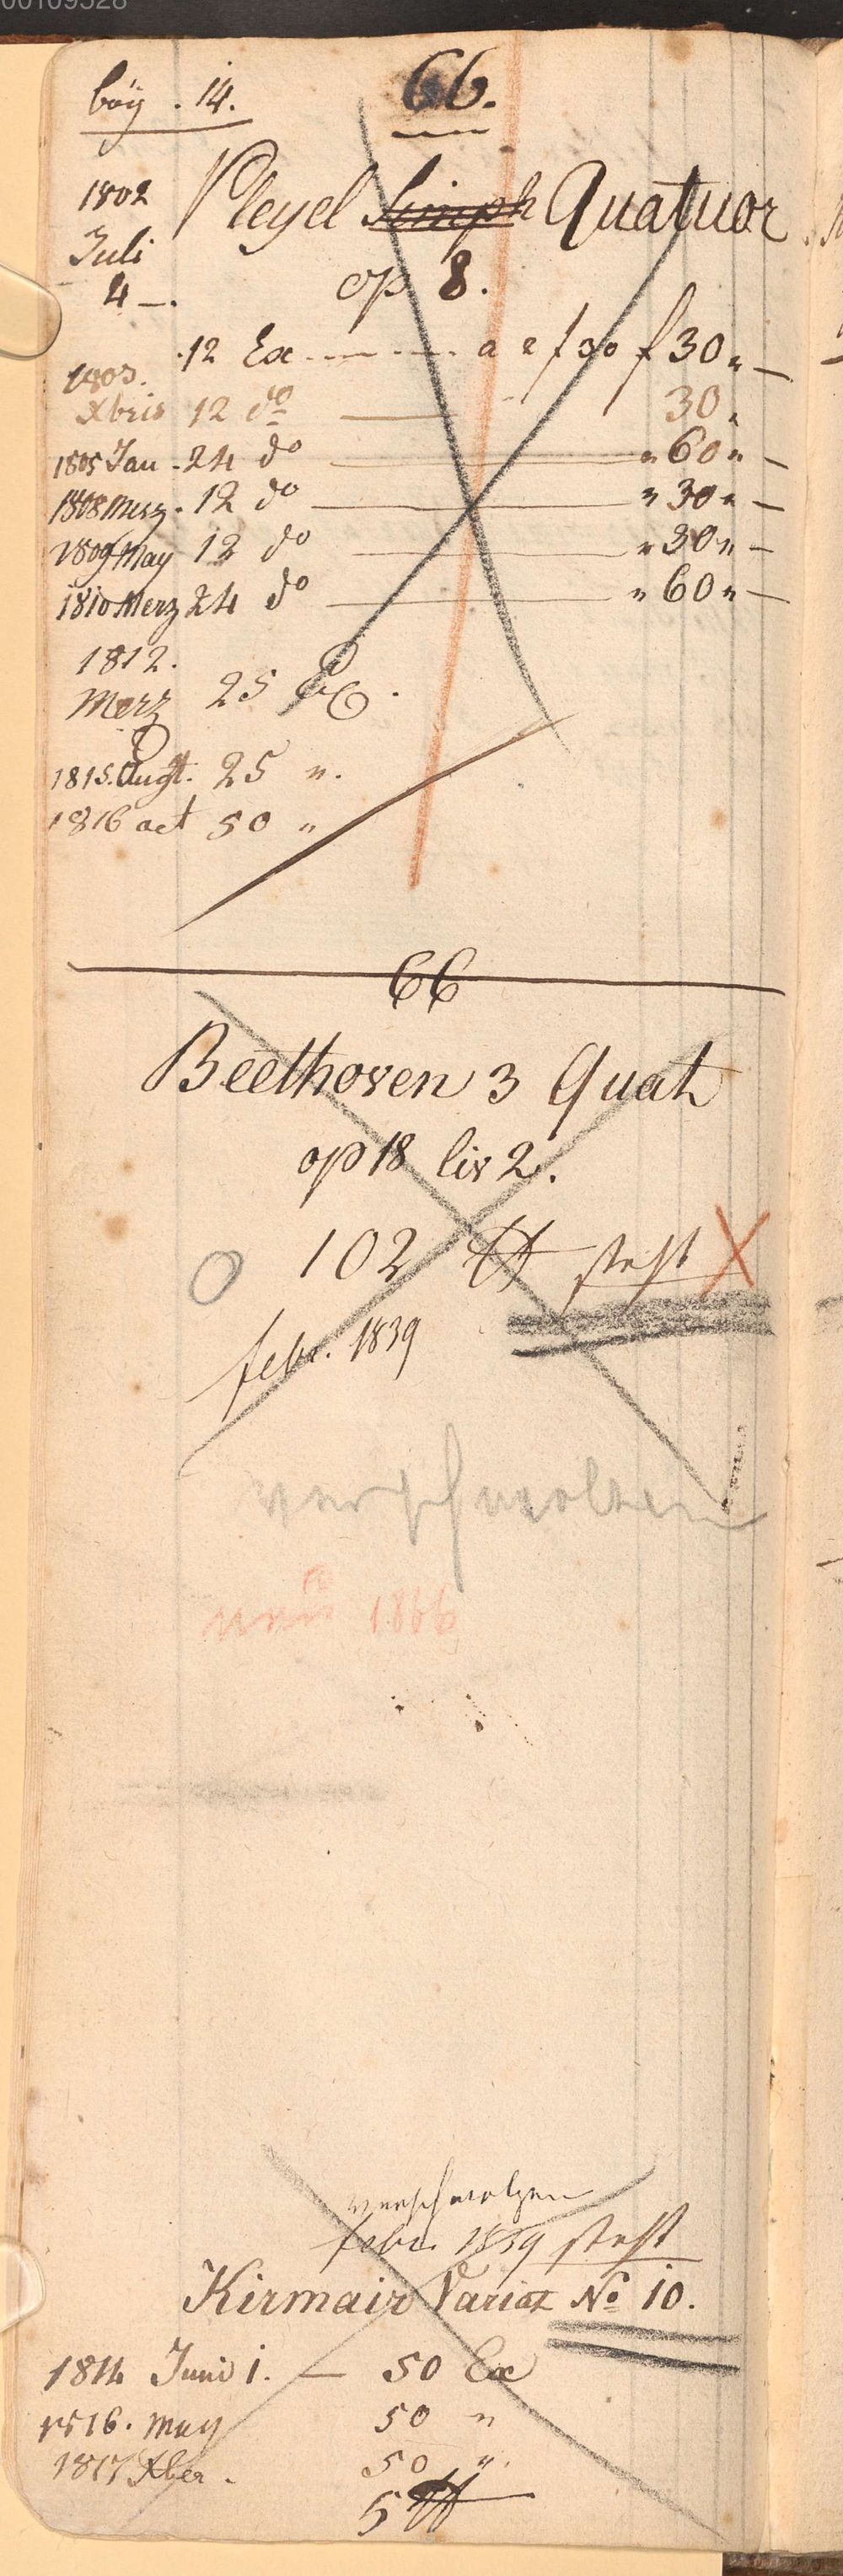 00109528
böÿ . 14. 66.
1802 Pleyel Simph Quatuor
Juli
4 —. op 8.
12 Ex. — a 2 f 30 f 30 „ —
1803.
Xbris 12 do — 30 „
1805 Jan - 24 do — „ 60 „ —
1808 Merz . 12 do — „ 30 „ —
1809 May 12 do — „ 30 „ —
1810 Merz 24 do — „ 60 „ —
1812.
Merz 25 Ex.
1815. Augt. 25 „.
1816 oct 50 „
66
Beethoven 3 Quat
op 18 liv 2.
102 steht
febr. 1839
verschmolzen
neu 1866
verschmolzen
febr. 1839 steht
Kirmair Variat No 10.
1814 Juni 1. — 50 Ex
1816. May 50 „
1817 Xber. 50 „.
5